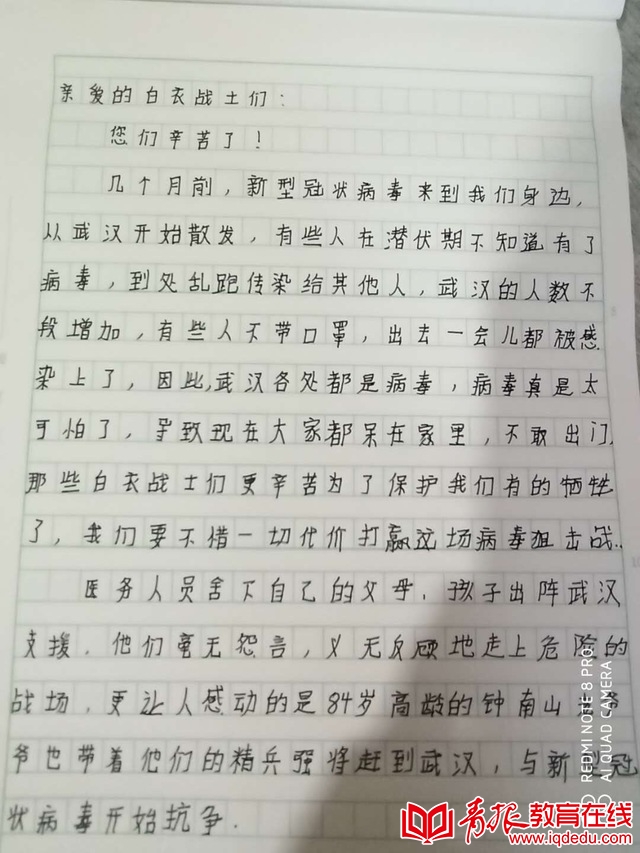 亲爱的白衣战士们：
您们辛苦了！
几个月前，新型冠状病毒来到我们身边，
从武汉开始散发，有些人在潜伏期不知道有了
病毒，到处乱跑传染给其他人，武汉的人数不
段增加，有些人不带口罩，出去一会儿都被感
染上了，因此，武汉各处都是病毒，病毒真是太
可怕了，导致现在大家都呆在家里，不敢出门，
那些白衣战士们更辛苦为了保护我们有的牺牲
了，我们要不惜一切代价打赢这场病毒狙击战..
医务人员舍下自己的父母，孩子出阵武汉
支援，他们毫无怨言，义无反顾地走上危险的
战场，更让人感动的是84岁高龄的钟南山爷
爷也带着他们的精兵强将赶到武汉，与新型冠
状病毒开始抗争.
REDMI NOTE 8 PRO
AI QUAD CAMERA
青报教育在线
www.iqdedu.com